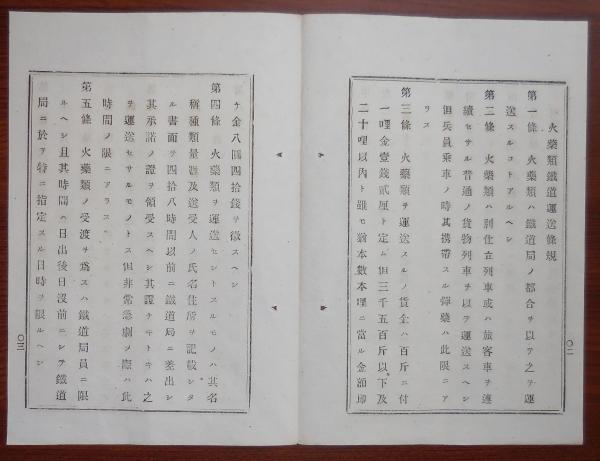 火藥類鐵道運送條規
第一條　火藥類ハ鐵道局ノ都合ヲ以テ之ヲ運
送スルコトアルヘシ
第二條　火藥類ハ別仕立列車或ハ旅客車ヲ連
續セサル普通ノ貨物列車ヲ以テ運送スヘシ
但兵員乘車ノ時其携帶スル彈藥ハ此限ニア
ラス
第三條　火藥類ヲ運送スルノ賃金ハ百斤ニ付
一哩金壹錢貳厘ト定ム但三千五百斤以下及
二十哩以內ト雖モ猶本數本哩ニ當ル金額卽
〇二
ケ金八圓四拾錢ヲ徵スヘシ
第四條　火藥類ヲ運送セントスルモノハ其名
稱種類量噐及送受人ノ氏名住所ヲ記載シタ
ル書面ヲ四拾八時間以前ニ鐵道局ニ差出シ
其承諾ノ證ヲ領受スヘシ其證ナキトキハ之
ヲ運送セサルモノトス但非常急劇ノ際ハ此
時間ノ限ニアラス
第五條　火藥類ノ受渡ヲ爲スハ鐵道局員ニ限
ルヘシ且其時間ハ日出後日沒前ニシテ鐵道
局ニ於テ特ニ指定スル日時ヲ限ルヘシ
〇三